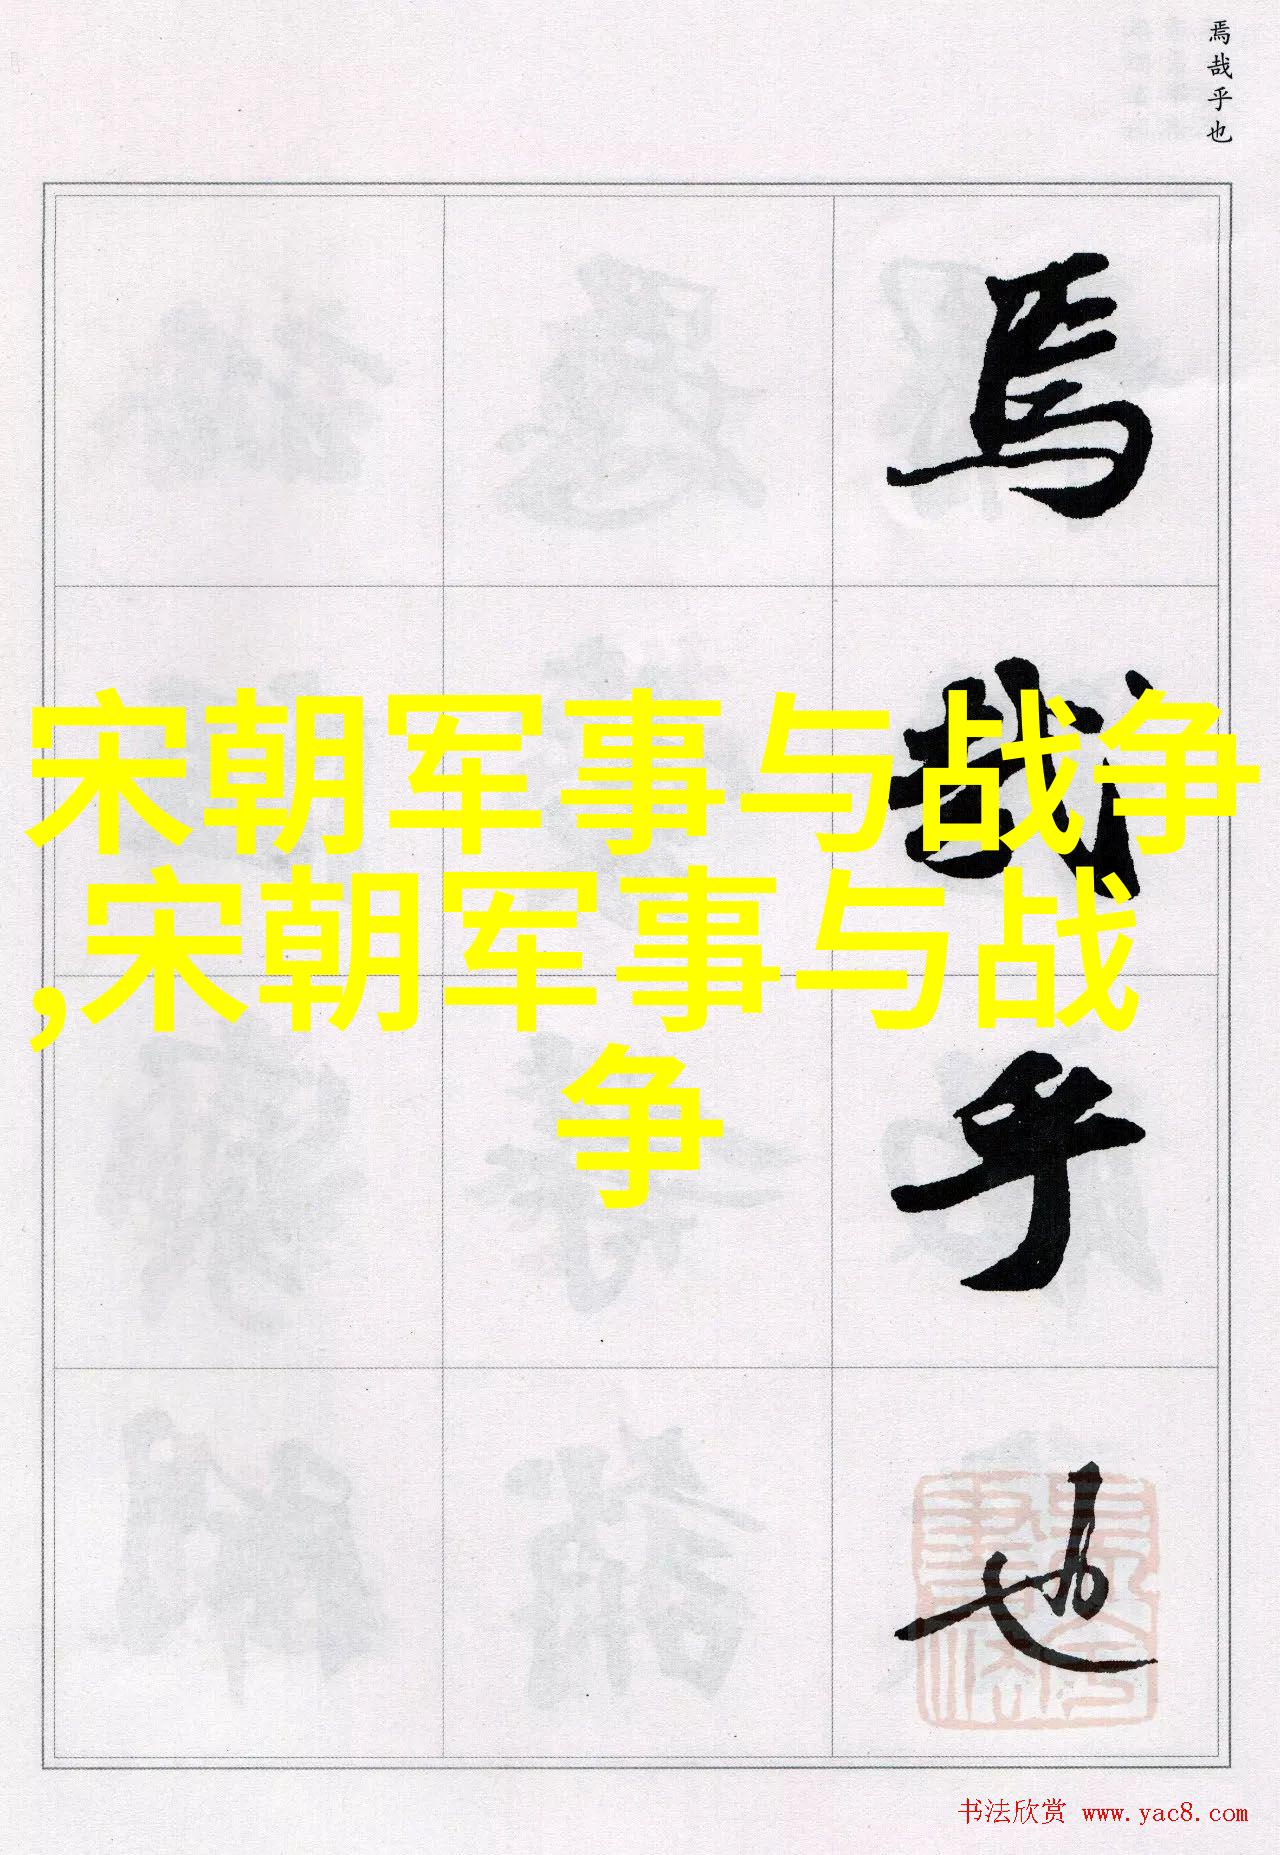 焉哉乎也
焉
哉
乎
也
宋朝军事与战争
,宋朝军事与战
争
书法欣赏 www.yac8.com